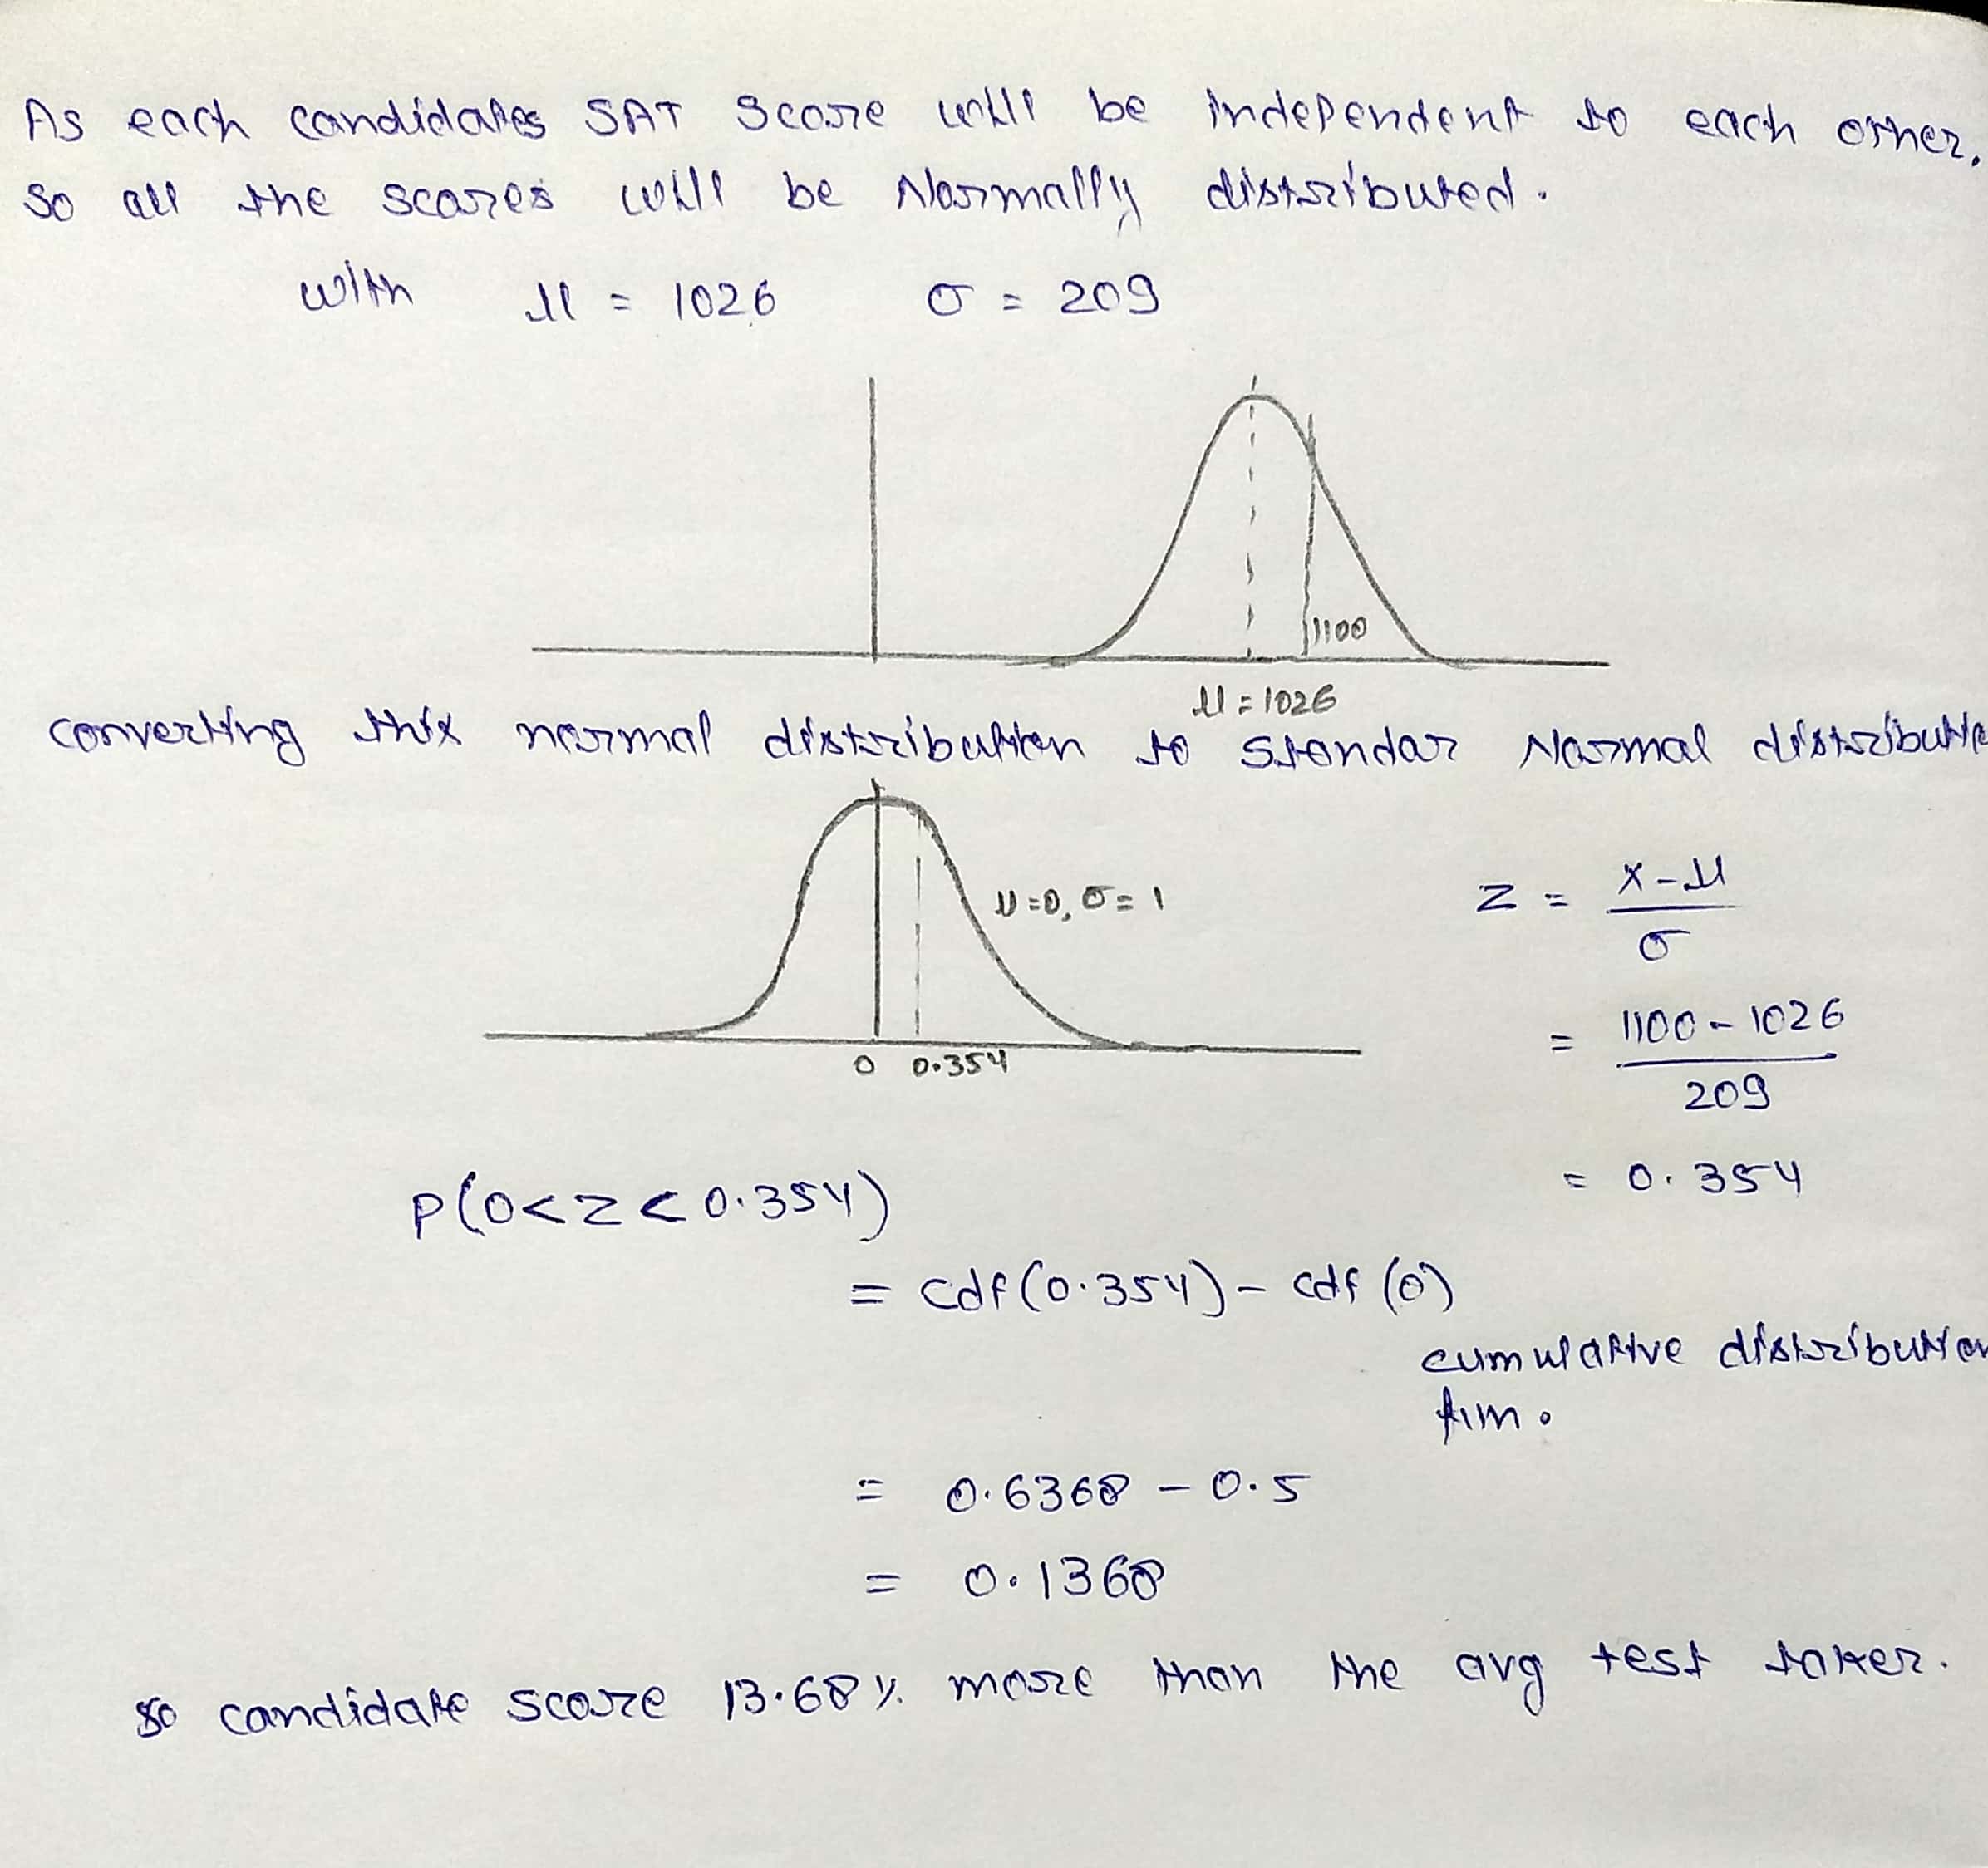 As each candidates SAT Score will be independent to each other.
so all the scores will be Normally distributed.
with μ = 1026 σ = 209
1100
μ = 1026
converting this normal distribution to Standar Normal distributio
μ=0, σ=1
0 0.354
Z = x-μ / σ
= 1100 - 1026 / 209
= 0.354
P(0<z<0.354)
= cdf(0.354) - cdf(0)
cumulative distribution
fun.
= 0.6368 - 0.5
= 0.1368
so candidate score 13.68% more than the avg test taker.